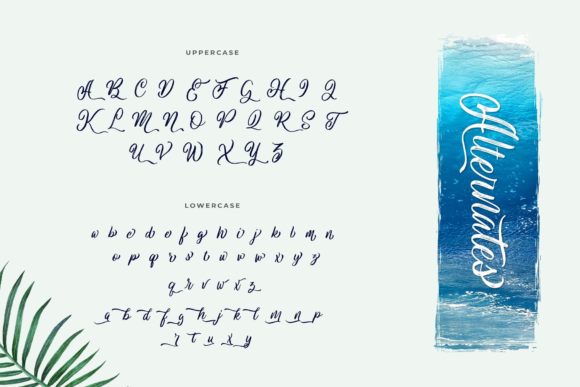 UPPERCASE
A B C D E F G H I J
K L M N O P Q R S T
U V W X Y Z
LOWERCASE
a b c d e f g h i j k l m n
o p q r s t u v w x y z
q r v w x z
r t u x y
Alternates